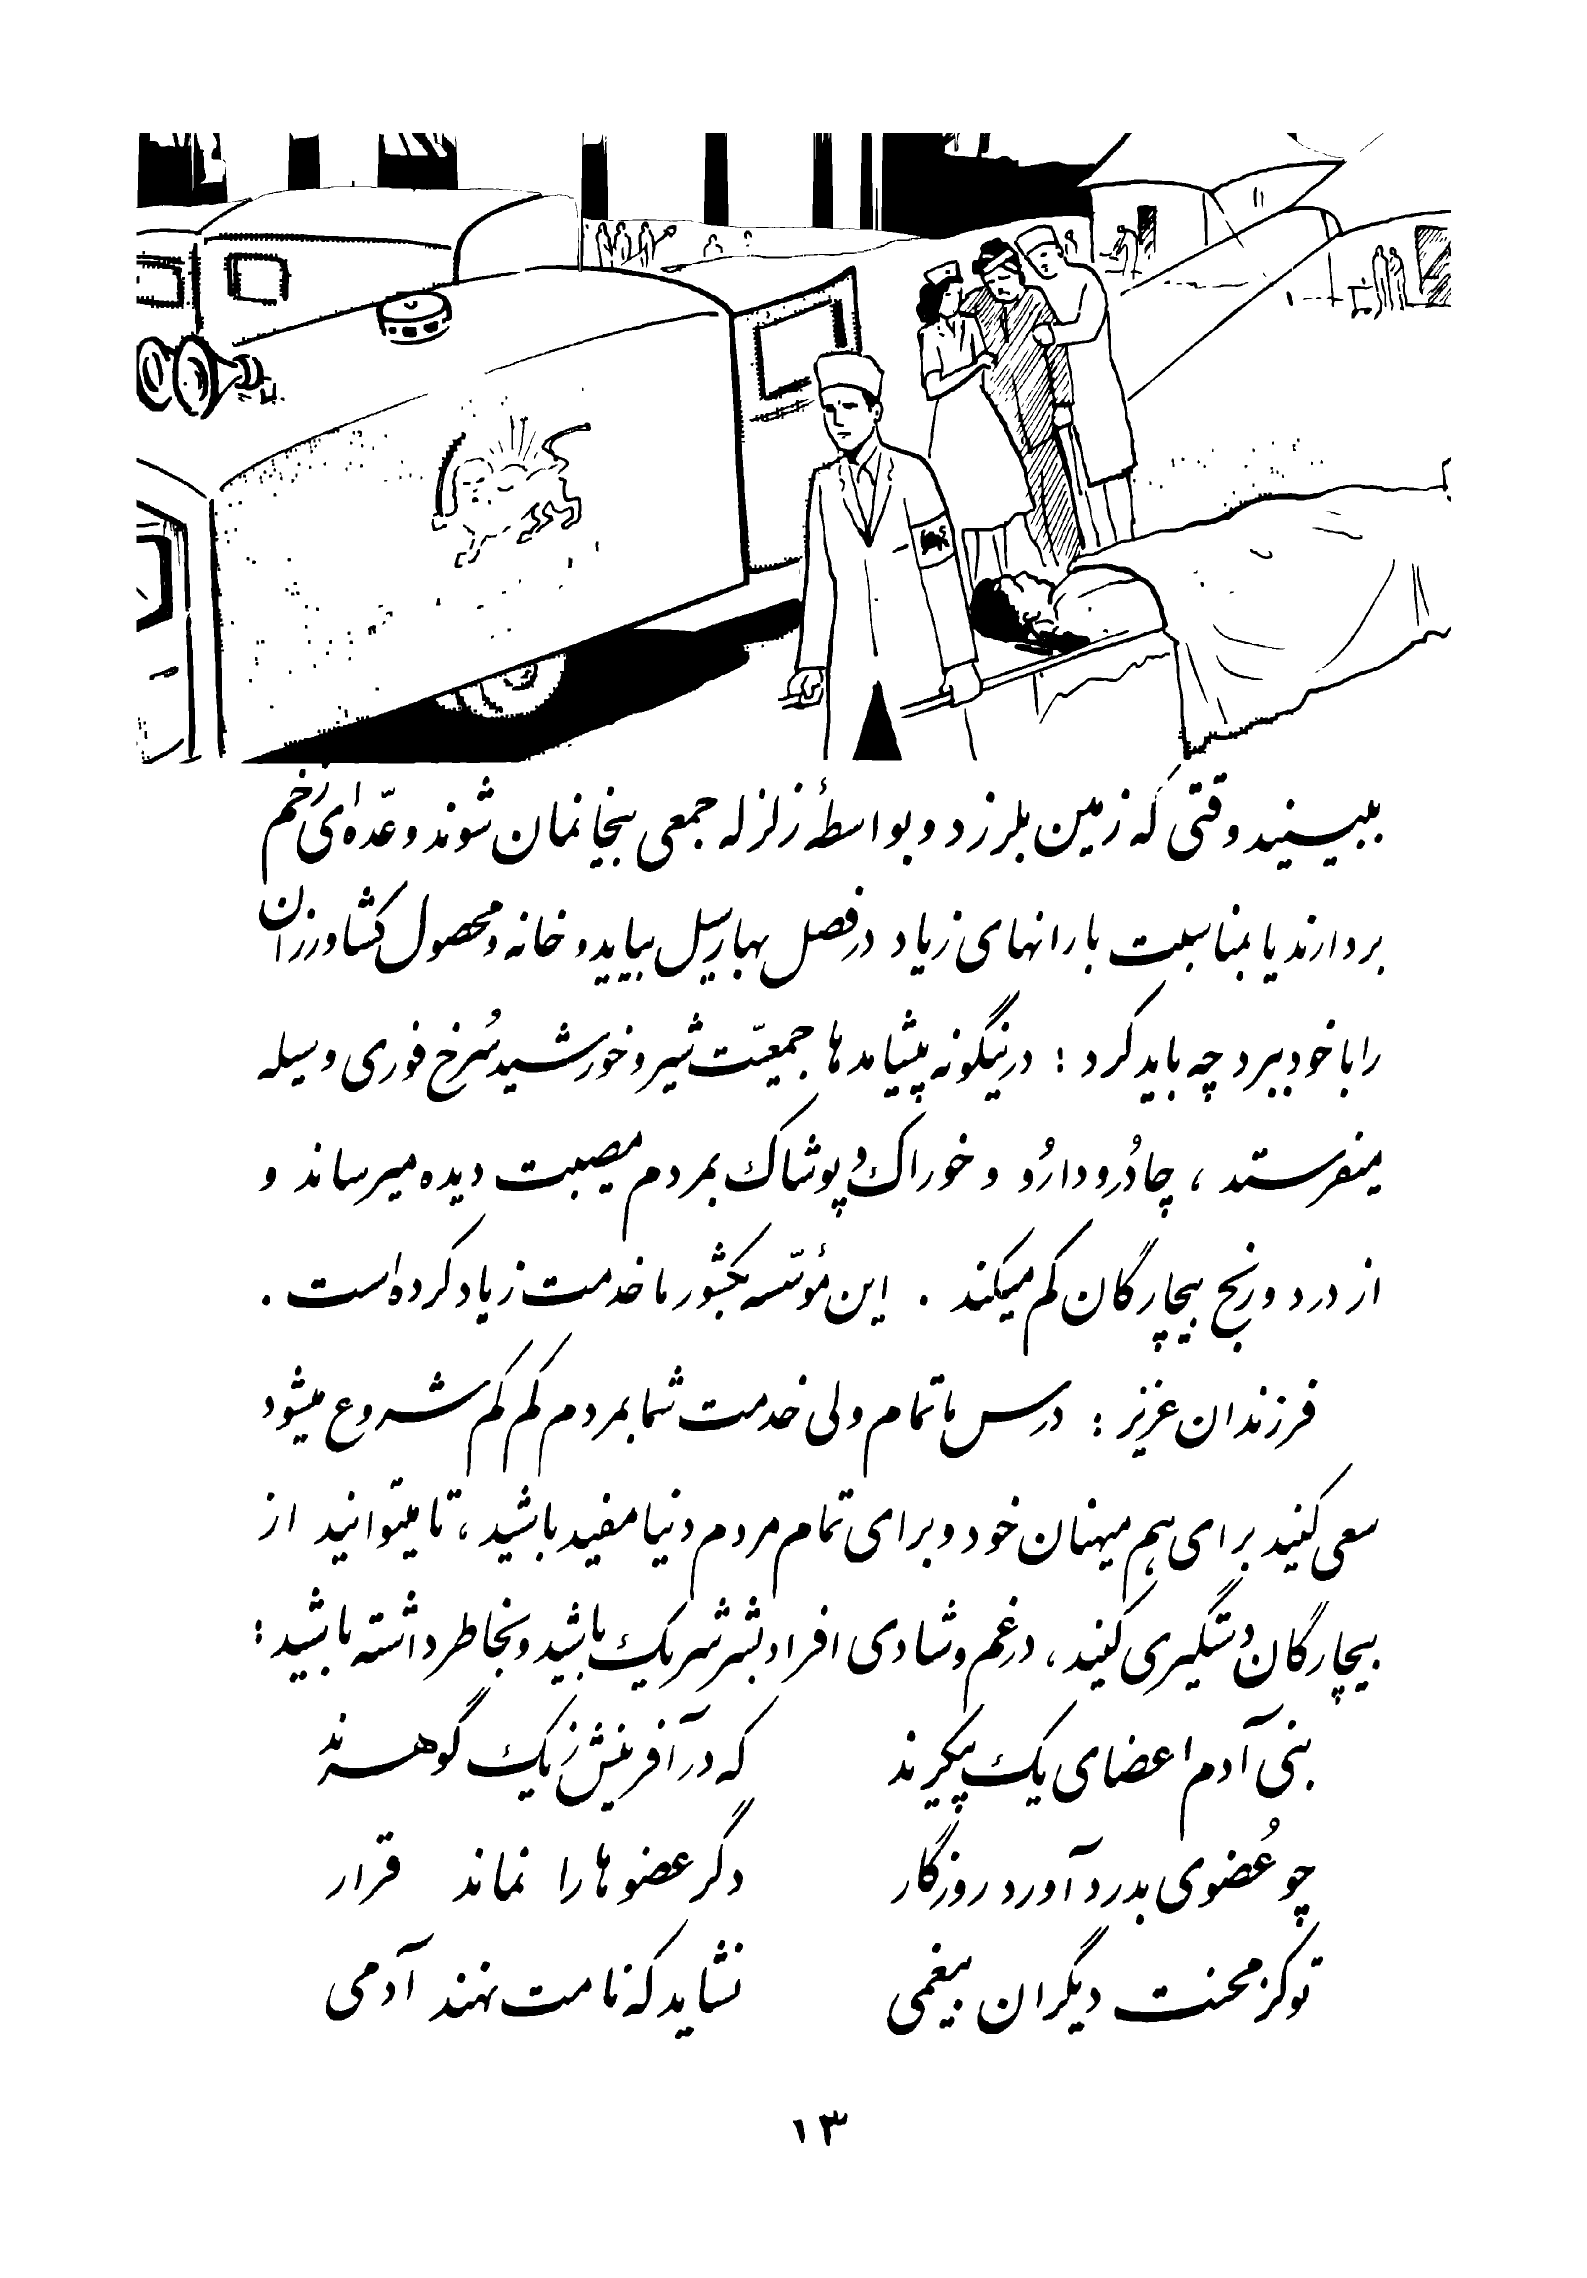 ببینید وقتی که زمین بلرزد و بواسطهٔ زلزله جمعی بیخانمان شوند و عدّه‌ای زخم
بردارند یا بمناسبت بارانهای زیاد در فصل بهار سیل بیاید و خانه و محصول کشاورزان
را با خود ببرد چه باید کرد : دراینگونه پیشامدها جمعیّت شیر و خورشید سُرخ فوری وسیله
میفرستد ، چادُر و دارُو و خوراک و پوشاک بمردم مصیبت دیده میرساند و
از درد و رنج بیچارگان کم میکند . این مؤسّسهٔ بکشور ما خدمت زیاد کرده‌است .
فرزندان عزیز : درس ما تمام ولی خدمت شما بمردم کم کم شروع میشود
سعی کنید برای هم میهنان خود و برای تمام مردم دنیا مفید باشید ، تا میتوانید از
بیچارگان دستگیری کنید ، در غم و شادی افراد بشر شریک باشید و بخاطر داشته باشید :
بنی آدم اعضای یک پیکرند که در آفرینش ز یک گوهرند
چو عُضوی بدرد آورد روزگار دگر عضوها را نماند قرار
تو کز محنت دیگران بیغمی نشاید که نامت نهند آدمی
۱۳